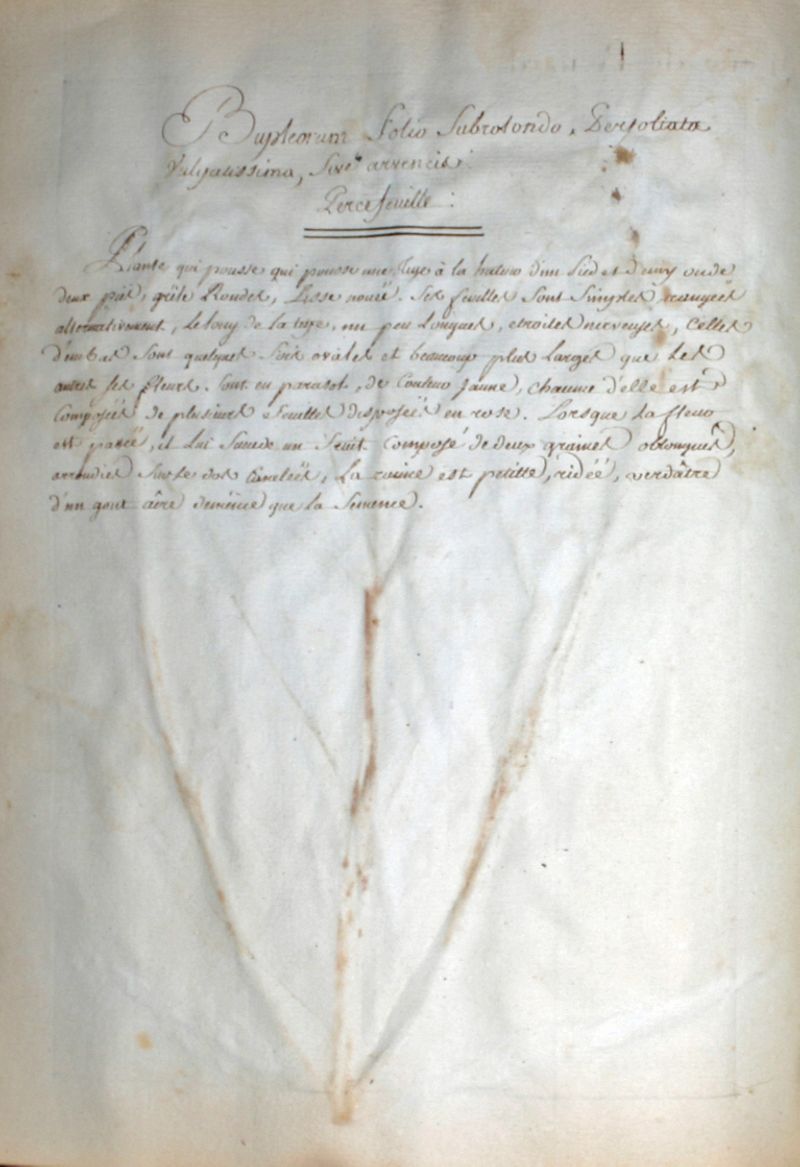 Bupleorum Folio Subrotondo, Perfoliata
Vulgatissima, Sive arvencis:
Percefeuille:
Plante qui pousse qui pousse une tige à la hateur d'un pied et demy ou de
deux pied, grêle Rondes, Lisse nouëe. Ses feuilles Sont Simples rangées
alternativement, le long de la tige, un peu longues, etroites nerveuses, Celles
d'embas Sont quelques fois ovales et beaucoup plus larges que les
autres ses fleurs. Sont en parasol, de Couleur jaune, chacune d'elle est
Composée de plusieurs feuilles disposées en rose. Lorsque la fleur
est passée, il lui Succede un fruit Composé de deux graines oblongues,
arrondies Sur le dos Canelées, La racine est petitte, ridée, verdâtre
d'un gout âcre demême que la Semence.